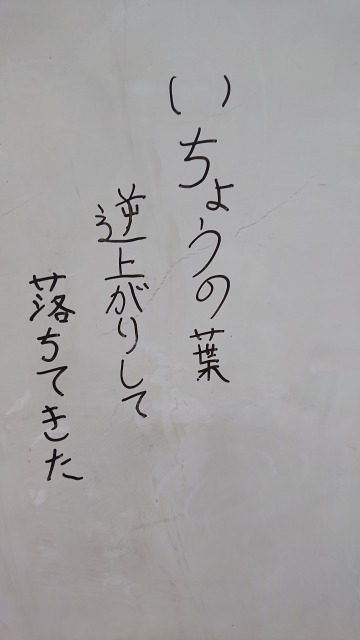 いちょうの葉
逆上がりして
落ちてきた